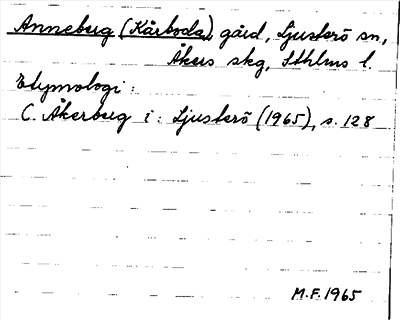 Anneberg (Kårboda), gård, Ljusterö sn,
Åkers skg, Sthlms l.
Etymologi:
C. Åkerberg i: Ljusterö (1965), s. 128
M.F. 1965